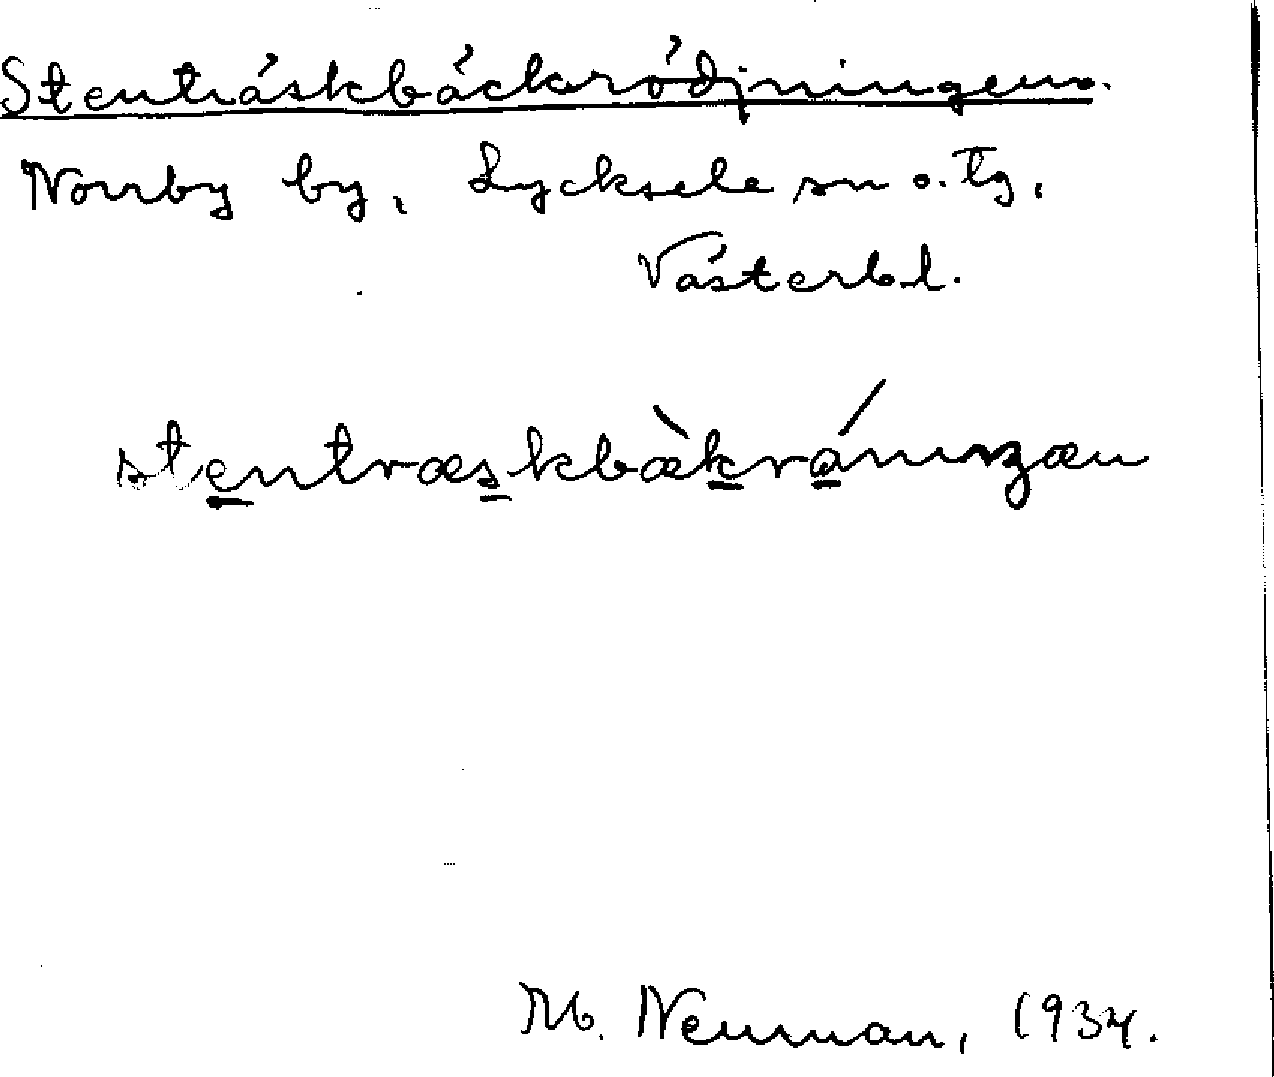 Stenträskbäckrödjningen.
Norrby by, Lycksele sn o. tg,
Västerbl.
stentræskbæ̀krá
M. Neuman, 1934.